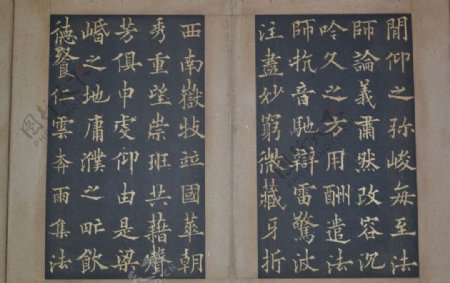 閒仰之弥峻每至法
師論義肅然改容沉
吟久之方用酬遣法
師抗音馳辯雷驚波
注盡妙窮微藏牙折
西南嶽牧竝國華朝
秀重望崇班共藉聲
芳俱申虔仰由是梁
岷之地庸濮之甿飲
德飡仁雲奔雨集法